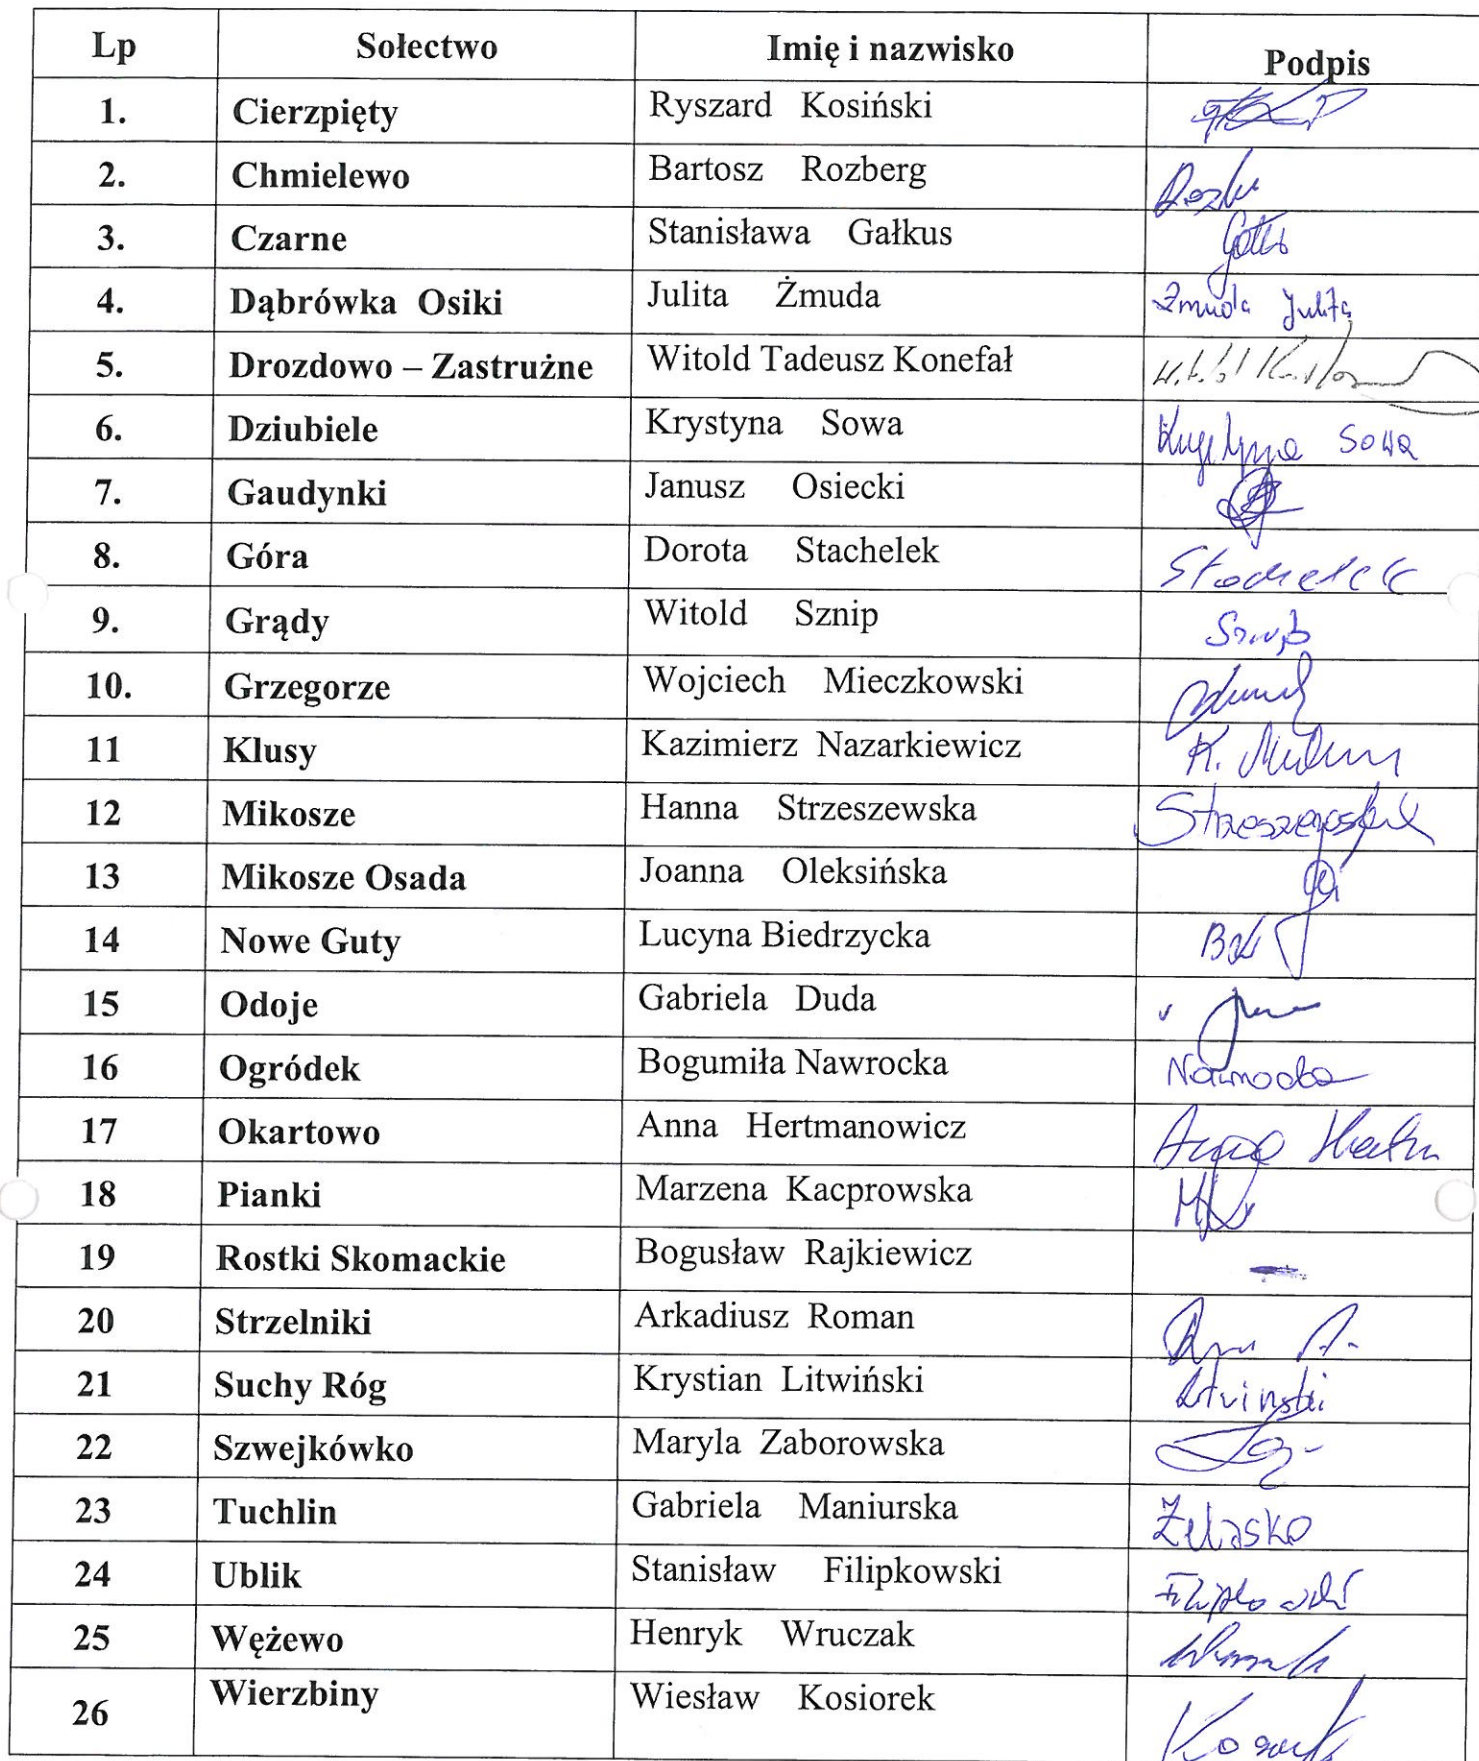 Lp Sołectwo Imię i nazwisko Podpis
1. Cierzpięty Ryszard Kosiński
2. Chmielewo Bartosz Rozberg
3. Czarne Stanisława Gałkus
4. Dąbrówka Osiki Julita Żmuda Żmuda Julita
5. Drozdowo – Zastrużne Witold Tadeusz Konefał
6. Dziubiele Krystyna Sowa Krystyna Sowa
7. Gaudynki Janusz Osiecki
8. Góra Dorota Stachelek Stachelek
9. Grądy Witold Sznip
10. Grzegorze Wojciech Mieczkowski
11 Klusy Kazimierz Nazarkiewicz K.
12 Mikosze Hanna Strzeszewska
13 Mikosze Osada Joanna Oleksińska
14 Nowe Guty Lucyna Biedrzycka
15 Odoje Gabriela Duda
16 Ogródek Bogumiła Nawrocka Nawrocka
17 Okartowo Anna Hertmanowicz Anna
18 Pianki Marzena Kacprowska
19 Rostki Skomackie Bogusław Rajkiewicz
20 Strzelniki Arkadiusz Roman
21 Suchy Róg Krystian Litwiński
22 Szwejkówko Maryla Zaborowska
23 Tuchlin Gabriela Maniurska Żelasko
24 Ublik Stanisław Filipkowski Filipkowski
25 Wężewo Henryk Wruczak
26 Wierzbiny Wiesław Kosiorek